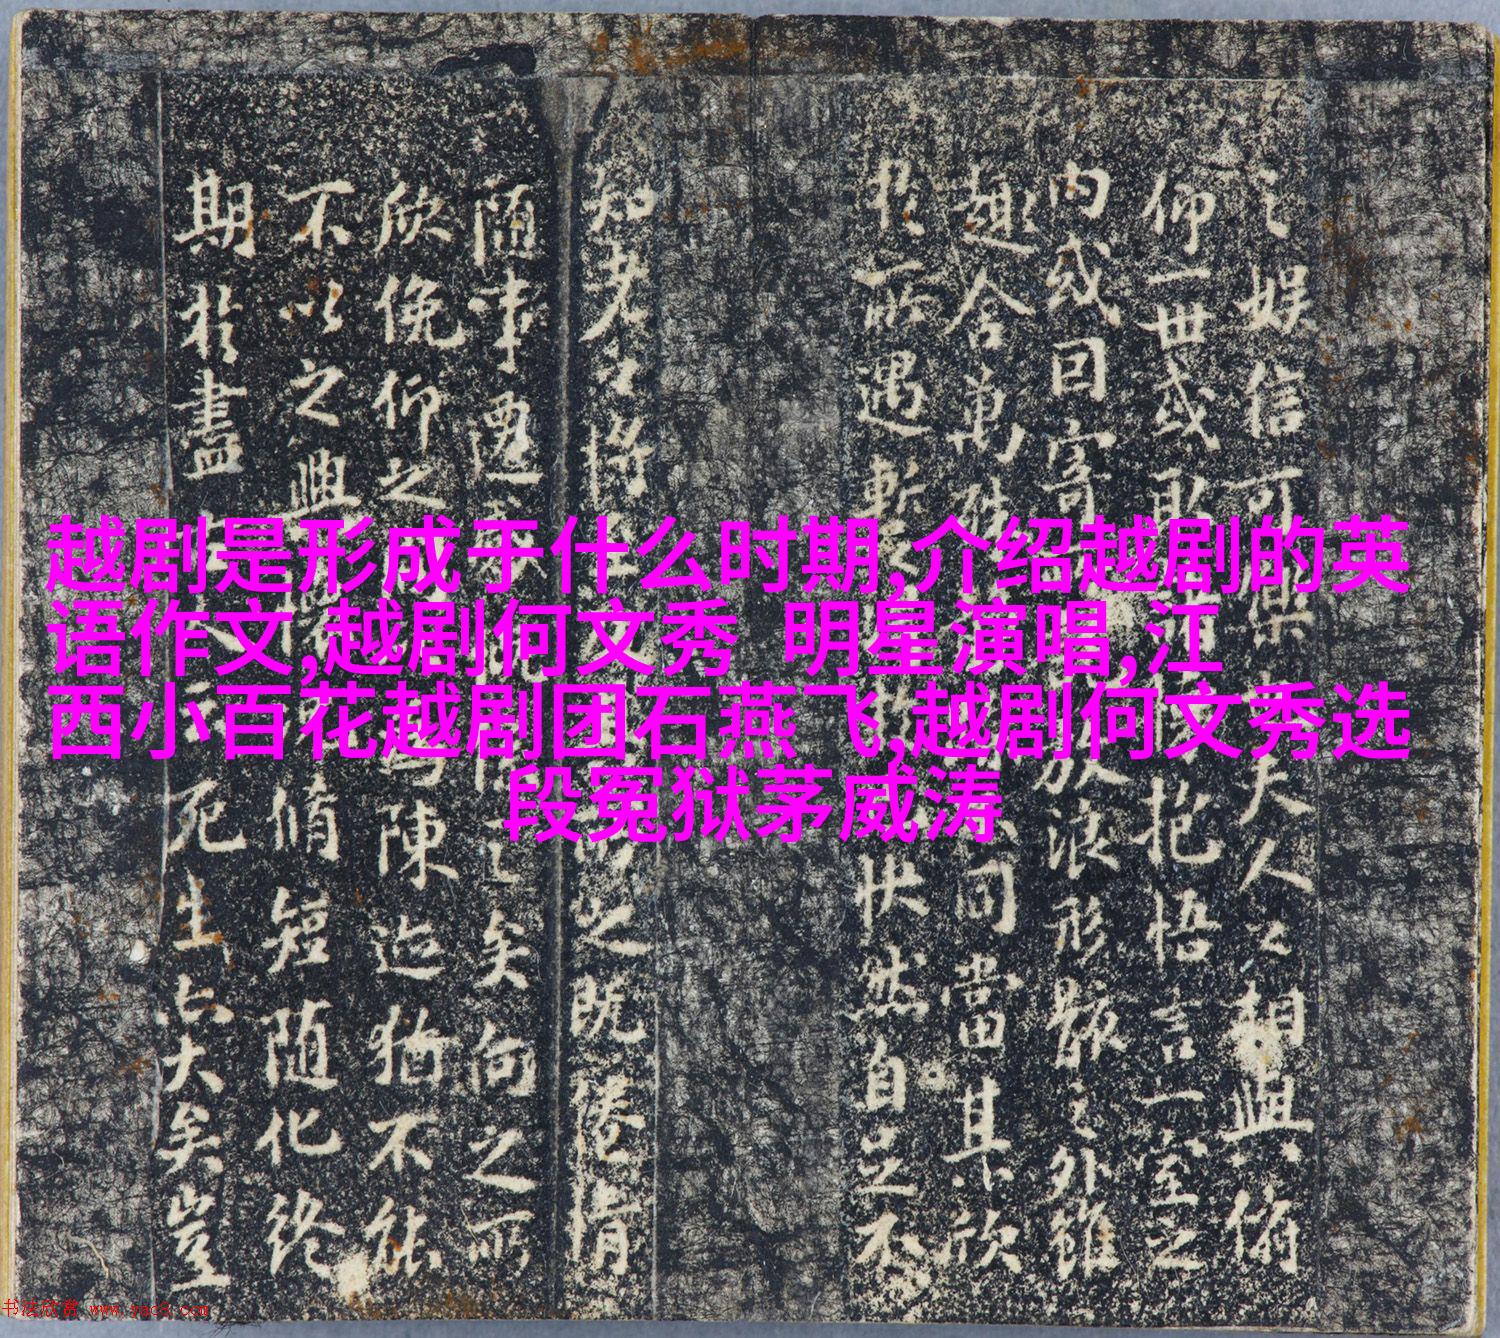 越剧是形成于什么时期,介绍越剧的英
语作文,越剧何文秀 明星演唱,江
西小百花越剧团石燕飞,越剧何文秀选
段冤狱茅威涛
之娱信可樂夫人之相與俯
仰一世或取抱悟言一室之
内或因寄放浪形骸之外雖
趣舍萬殊同當其欣
於所遇暫快然自足不
知老之將之既倦情
随事遷矣向之所
欣俛仰之陳迹猶不能
不以之興脩短随化終
期於盡死生亦大矣豈
书法欣赏 www.yac8.com